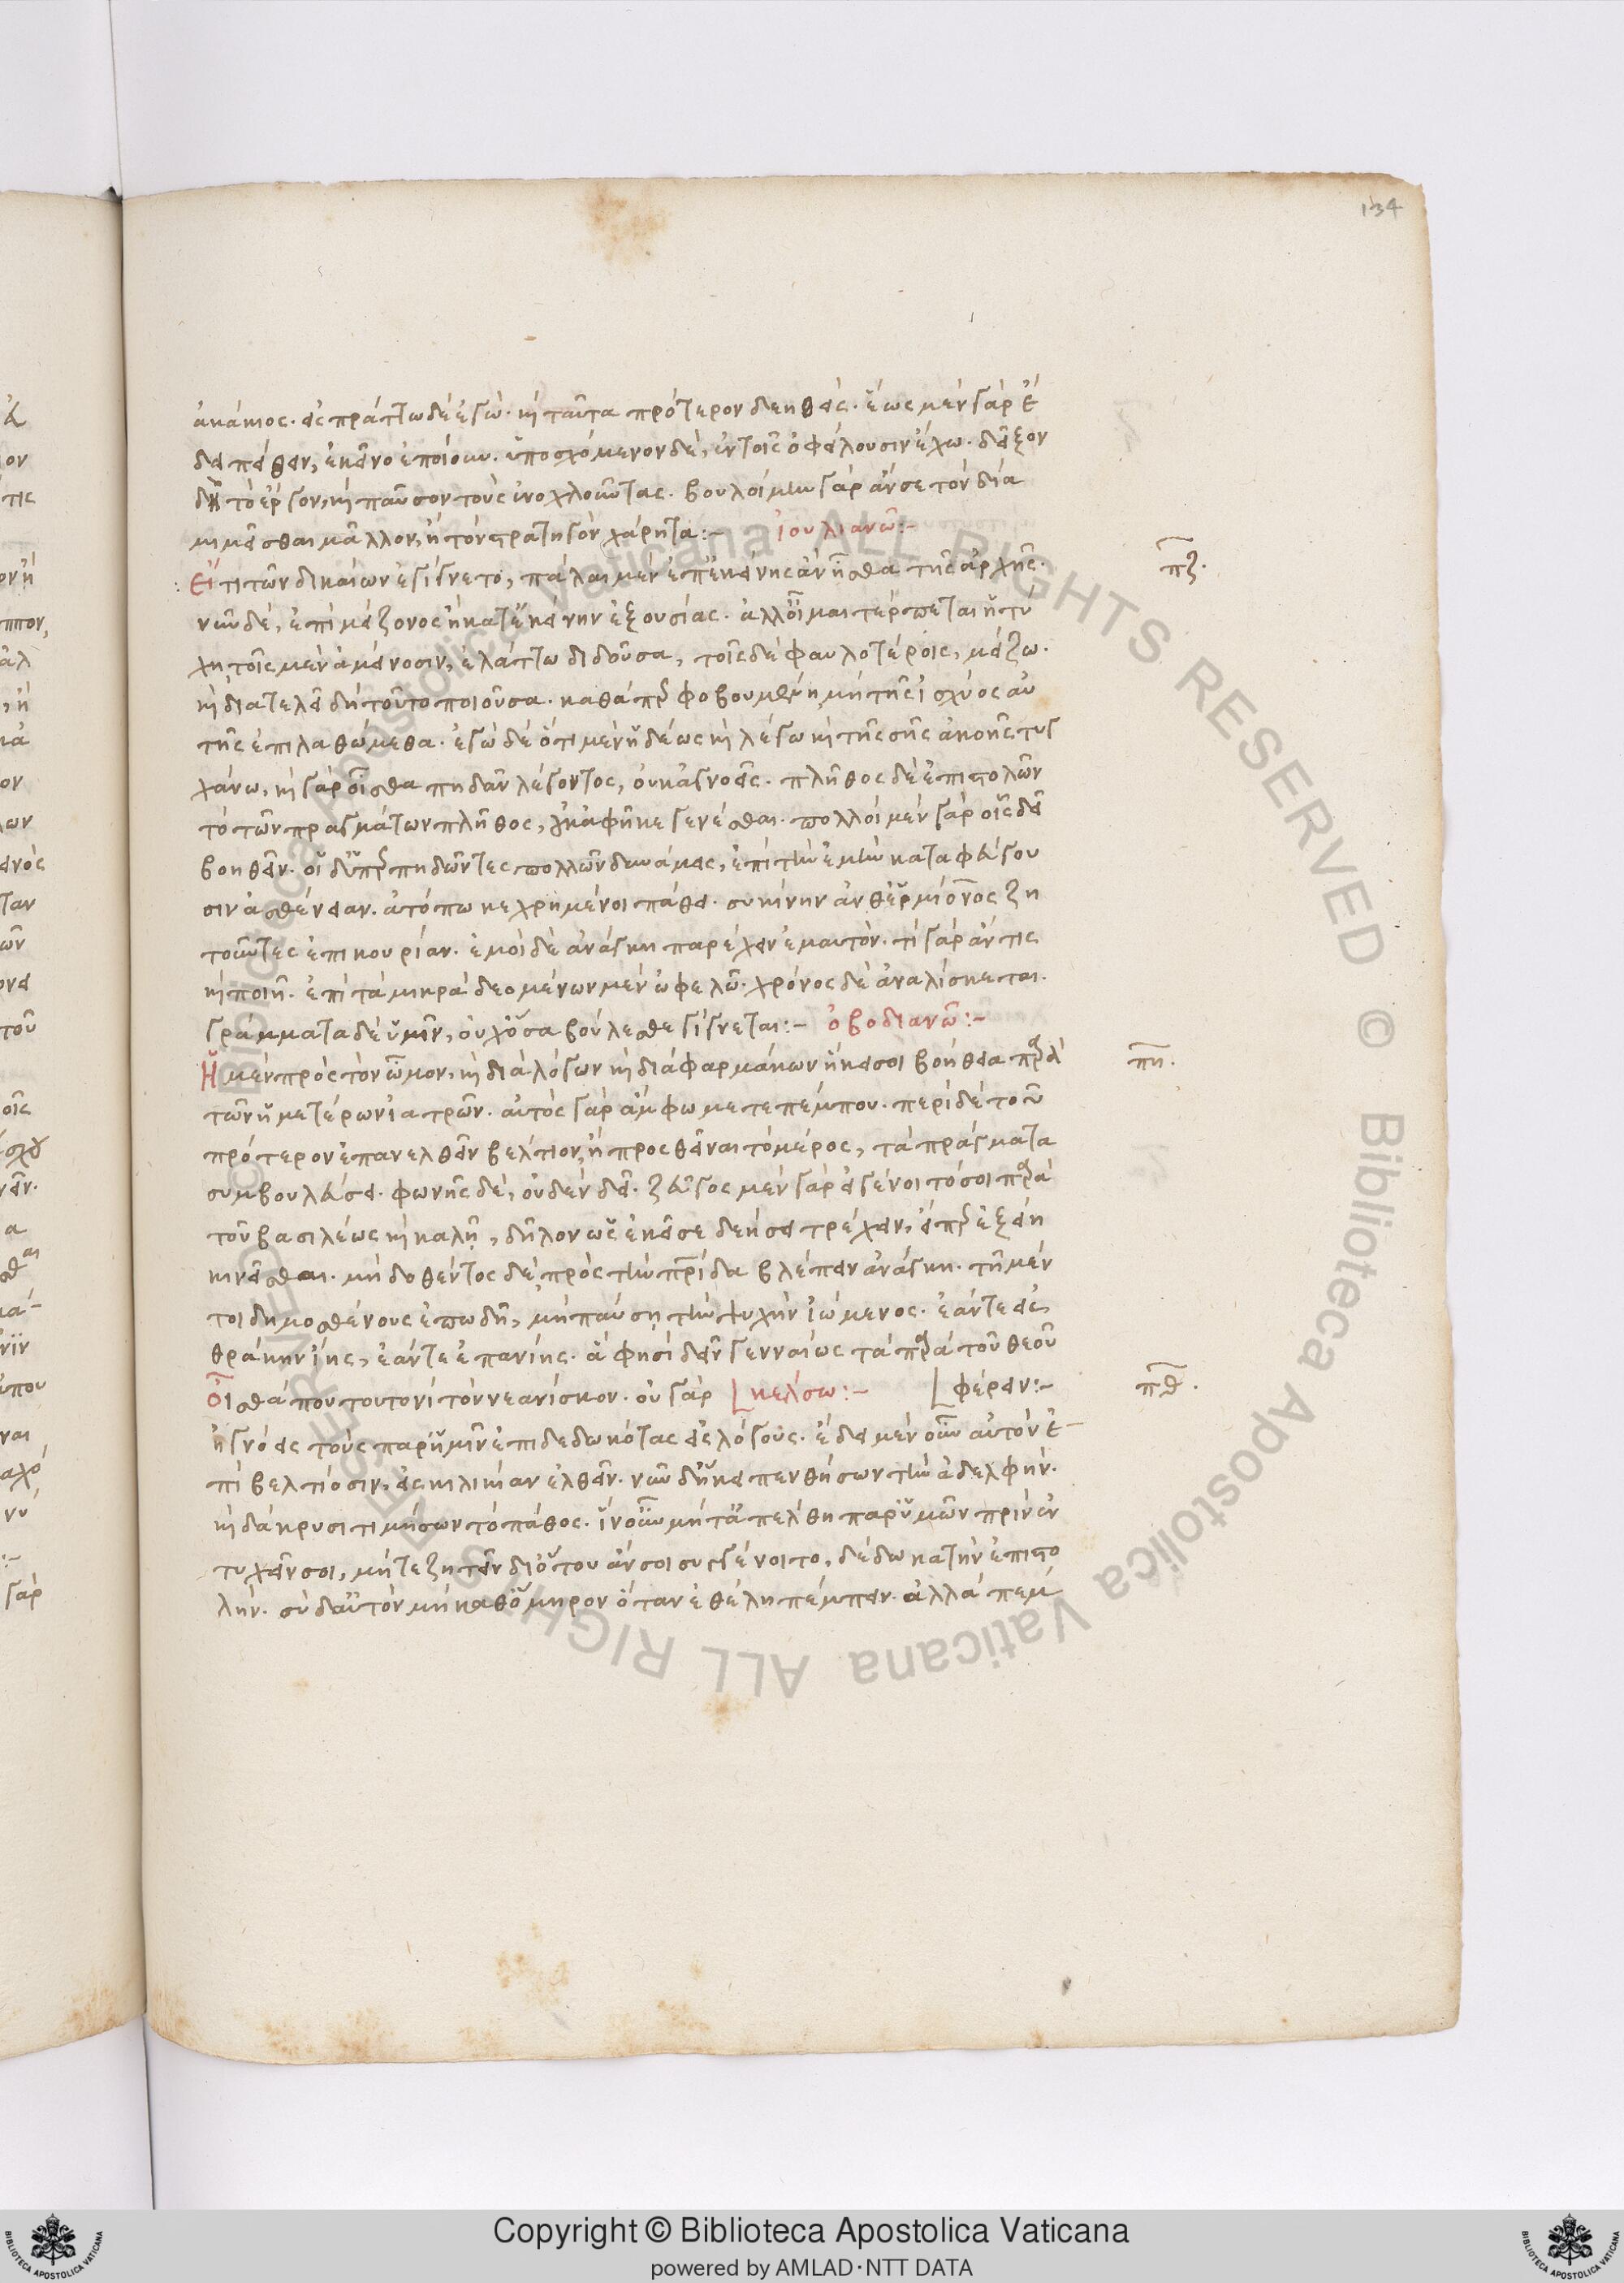 134
ἀκάκιος. εἰσπράττω δὲ ἐγώ. καὶ ταῦτα πρότερον δεηθείς. ἕως μὲν γὰρ ἔ
δει πείθειν, ἐκεῖνο ἐποίουν. ὑποσχόμενον δὲ, ἐν τοῖς ὀφείλουσιν ἔχω. δεῖξον
δὴ τὸ ἔργον, καὶ παῦσον τοὺς ἐνοχλοῦντας. βουλοίμην γὰρ ἄν σε τὸν δία
μιμεῖσθαι μᾶλλον, ἢ τὸν στρατηγὸν χάρητα:- ἰουλιανῶ:-
Εἴ τι τῶν δικαίων ἐγίγνετο, πάλαι μὲν ἐπ' ἐκείνης ἂν ἦσθα τῆς ἀρχῆς. πζ.
νῦν δὲ, ἐπὶ μείζονος ἢ κατ' ἐκείνην ἐξουσίας. ἀλλ' οἶμαι τέρπεται ἡ τύ
χη τοῖς μὲν ἀμείνοσιν, ἐλάττω διδοῦσα, τοῖς δὲ φαυλοτέροις, μείζω.
καὶ διατελεῖ δὴ τοῦτο ποιοῦσα. καθάπερ φοβουμένη μὴ τῆς ἰσχύος αὐ
τῆς ἐπιλαθώμεθα. ἐγὼ δὲ ὅτι μὲν ἡδέως καὶ λέγω καὶ τῆς σῆς ἀκοῆς τυγ
χάνω, καὶ γὰρ οἶσθα πηδᾶν λέγοντος, οὐκ ἀγνοεῖς. πλῆθος δὲ ἐπιστολῶν
τὸ τῶν πραγμάτων πλῆθος, οὐκ ἀφῆκε γενέσθαι. πολλοὶ μὲν γὰρ οἷς δεῖ
βοηθεῖν. οἱ δ' ὑπερπηδῶντες πολλῶν δυνάμεις, ἐπὶ τὴν ἐμὴν καταφεύγου
σιν ἀσθένειαν. ἀτόπω κεχρημένοι πάθει. συκίνην ἀνθ' ἑρμίονος ζη
τοῦντες ἐπικουρίαν. ἐμοὶ δὲ ἀνάγκη παρέχειν ἐμαυτόν. τί γὰρ ἄν τις
καὶ ποιῇ. ἐπὶ τὰ μικρὰ δεομένων μὲν ὠφελῶ. χρόνος δὲ ἀναλίσκεται.
γράμματα δὲ ὑμῖν, οὐχ ὅσα βούλεσθε γίγνεται:- ὀβοδιανῶ:-
Ἡ μὲν πρὸς τὸν ὦμον, καὶ διὰ λόγων καὶ διὰ φαρμάκων ἥκει σοι βοήθεια παρὰ πη.
τῶν ἡμετέρων ἰατρῶν. αὐτὸς γὰρ ἄμφω μετεπέμπου. περὶ δὲ τοῦ
πρότερον ἐπανελθεῖν βέλτιον, ἢ προσθεῖναι τὸ μέρος, τὰ πράγματα
συμβουλεύσει. φωνῆς δὲ, οὐδὲν δεῖ. ζεῦγος μὲν γὰρ εἰ γένοιτό σοι παρὰ
τοῦ βασιλέως καὶ καλῇ, δῆλον ὡς ἐκεῖσε δεήσει τρέχειν, εἴπερ ἐξείη
κινεῖσθαι. μὴ δοθέντος δὲ, πρὸς τὴν πατρίδα βλέπειν ἀνάγκη. τῇ μέν
τοι δημοσθένους ἐπωδῇ, μὴ παύσῃ τὴν ψυχὴν ἰώμενος. ἐάν τε εἰς
θράκην ἴῃς, ἐάν τε ἐπανίῃς. ἅ φησι δεῖν γενναίως τὰ παρὰ τοῦ θεοῦ
Οἶσθά που τουτονὶ τὸν νεανίσκον. οὐ γὰρ κέλσω:- φέρειν:- πθ.
ἠγνόεις τοὺς παρ' ἡμῖν ἐπιδεδωκότας εἰς λόγους. ἔδει μὲν οὖν αὐτὸν ἐ
πὶ βελτίοσιν, εἰς κιλικίαν ἐλθεῖν. νῦν δ' ἥκει πενθήσων τὴν ἀδελφήν.
καὶ δάκρυσι τιμήσων τὸ πάθος. ἵν' οὖν μήτ' ἀπέλθη παρ' ὑμῶν πρὶν ἐν
τυχεῖν σοι, μήτε ζητεῖν δι' ὅτου ἄν σοι συγγένοιτο, δέδωκα τὴν ἐπιστο
λήν. σὺ δ' αὐτὸν μὴ καθ' ὅμηρον ὅταν ἐθέλη πέμπειν. ἀλλὰ πεμ